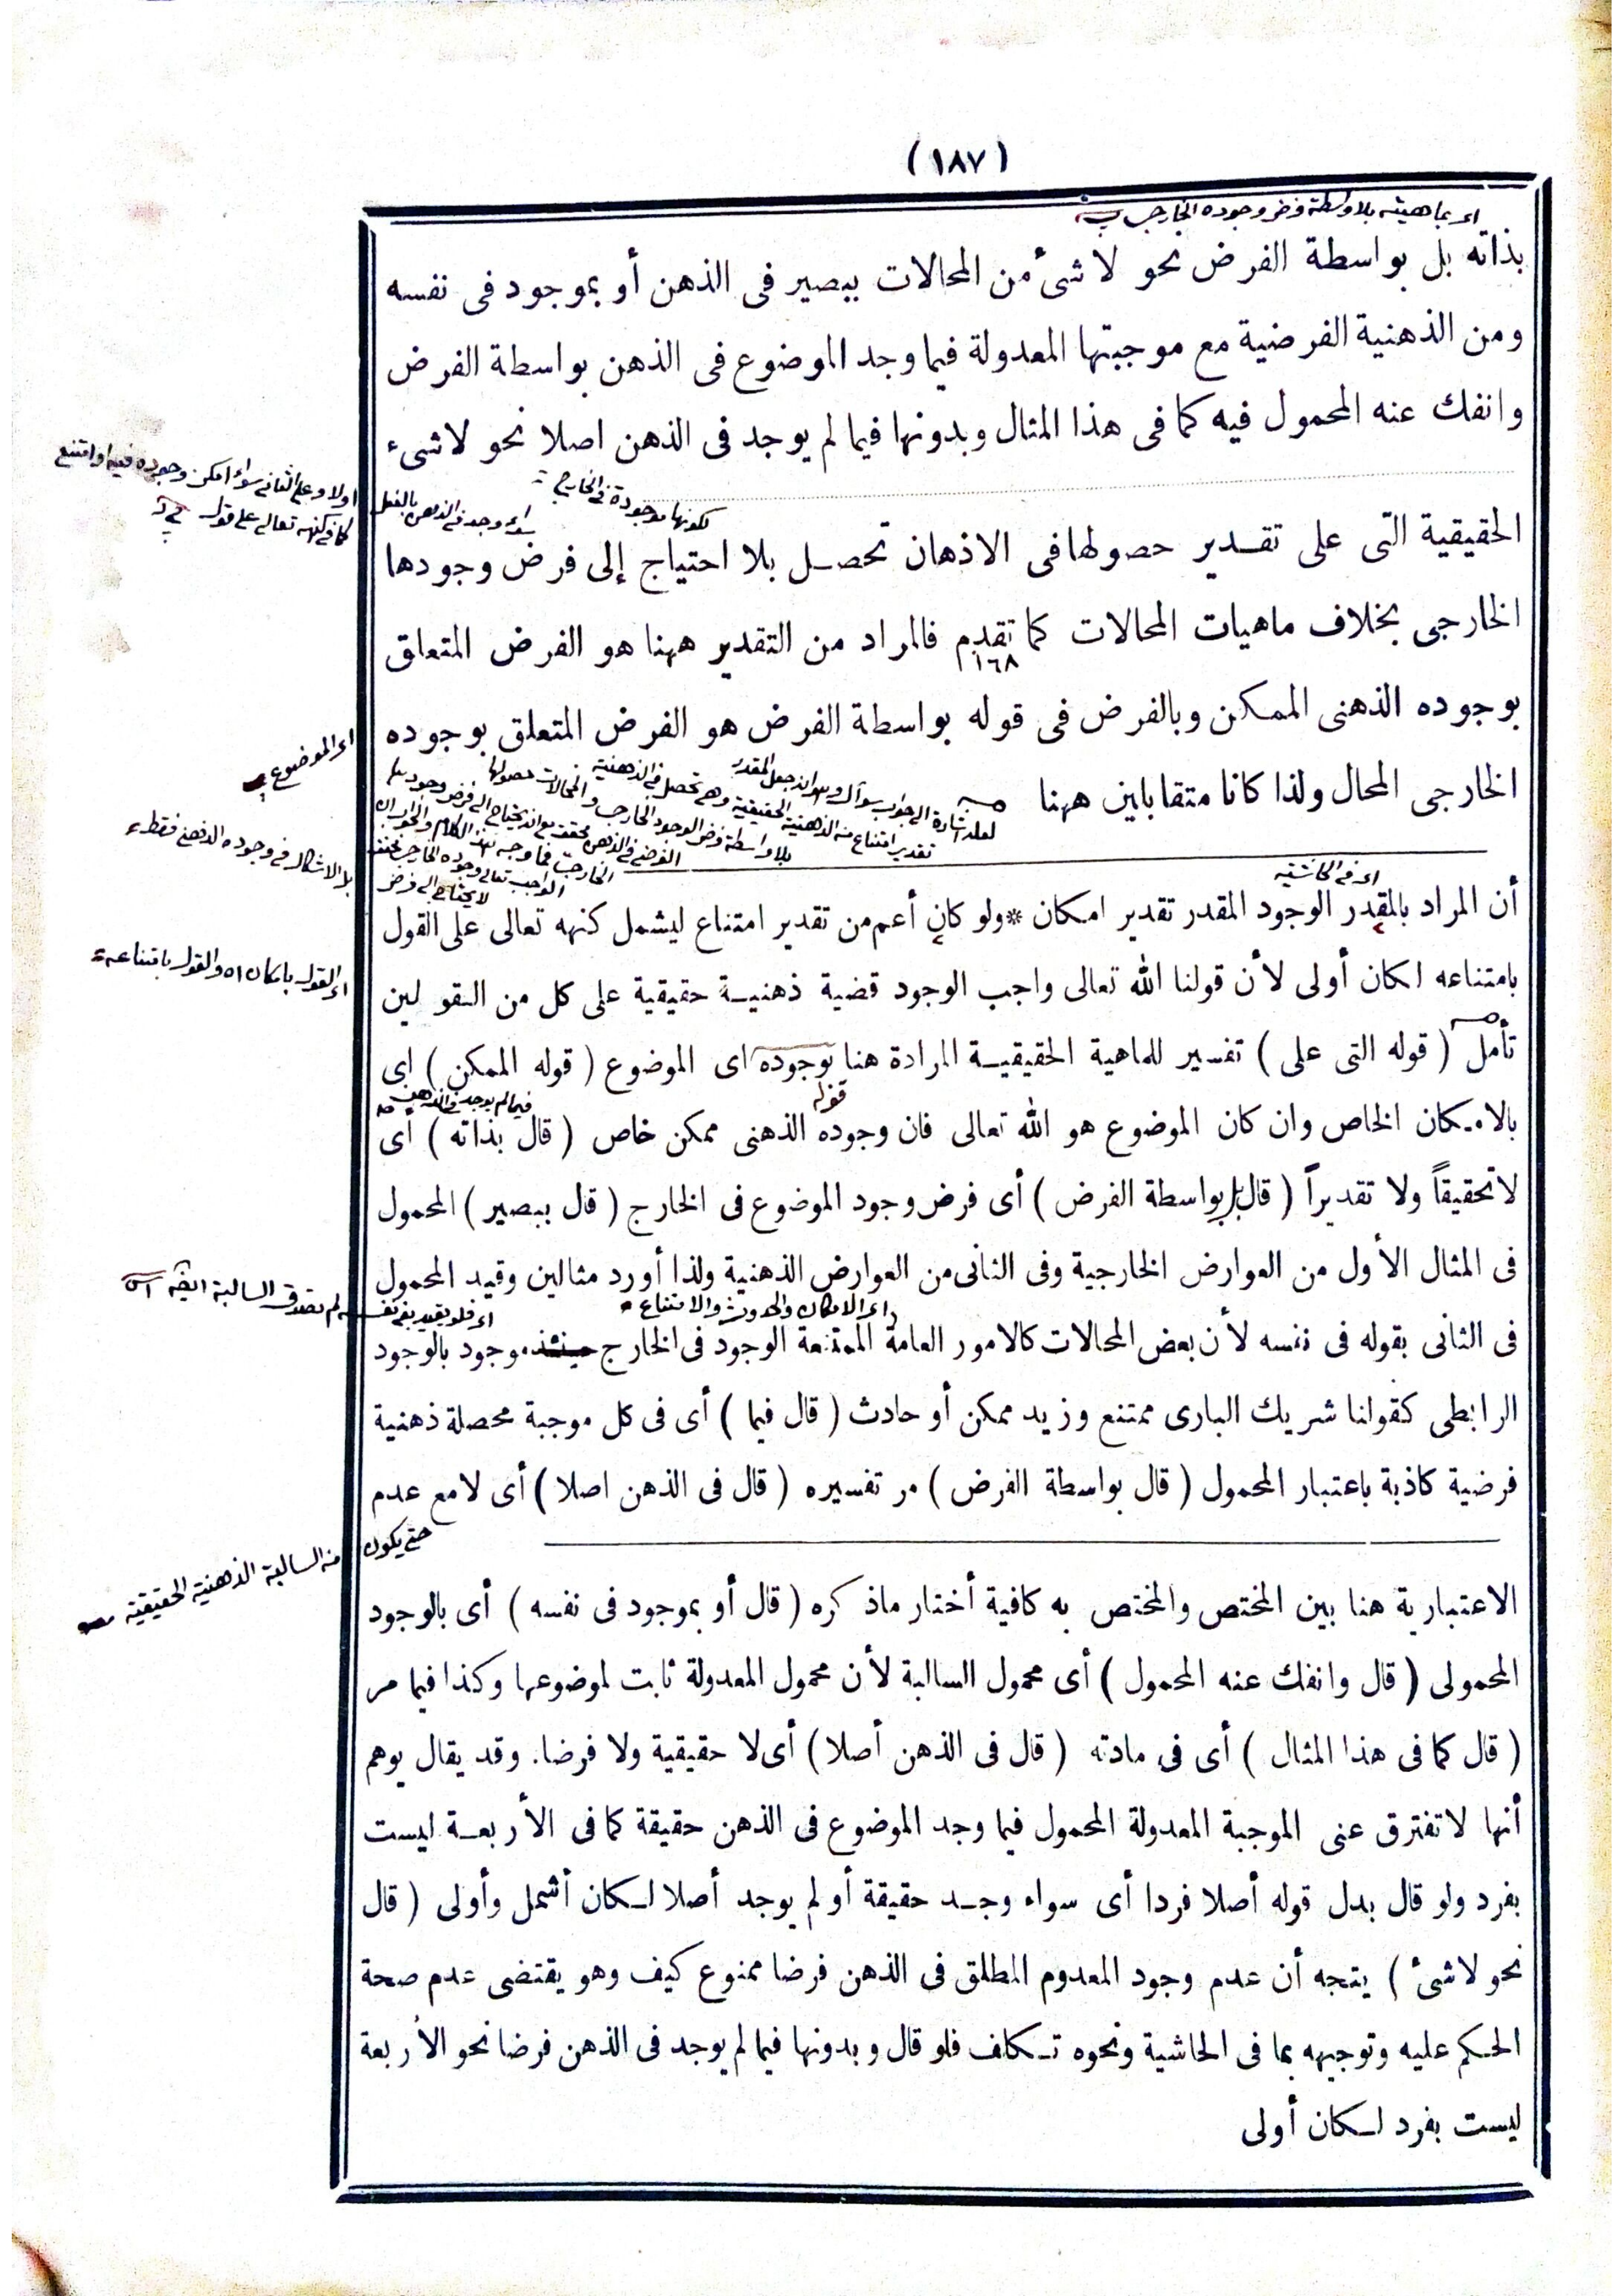 (١٨٧)
اى بماهيته بلا واسطة فرض وجوده الخارجى
بذاته بل بواسطة الفرض نحو لا شئ من المحالات ببصير فى الذهن أو بموجود فى نفسه
ومن الذهنية الفرضية مع موجبتها المعدولة فيما وجد الموضوع فى الذهن بواسطة الفرض
وانفك عنه المحمول فيه كما فى هذا المثال وبدونها فيما لم يوجد فى الذهن اصلا نحو لا شىء
لكونها موجودة فى الخارج
سواء وجد فى الذهن بالفعل
اولا وعلى الثانى سواء امكن وجوده فيه او امتنع
كما فى كنهه تعالى على قول
الحقيقية التى على تقدير حصولها فى الاذهان تحصل بلا احتياج إلى فرض وجودها
الخارجى بخلاف ماهيات المحالات كما تقدم فالمراد من التقدير ههنا هو الفرض المتعلق
١٦٨
بوجوده الذهنى الممكن وبالفرض فى قوله بواسطة الفرض هو الفرض المتعلق بوجوده
اى الموضوع
الخارجى المحال ولذا كانا متقابلين ههنا
بل الاشكال فى وجوده الذهنى فقط
اى فى الحاشية
أن المراد بالمقدر الوجود المقدر تقدير امكان * ولو كان أعم من تقدير امتناع ليشمل كنهه تعالى على القول
بامتناعه لكان أولى لأن قولنا الله تعالى واجب الوجود قضية ذهنية حقيقية على كل من القولين
اى القول بامكانه والقول بامتناعه
تأمل ( قوله التى على ) تفسير للماهية الحقيقية المرادة هنا بوجوده اى الموضوع ( قوله الممكن ) اى
قوله
فيما لم يوجد فى الذهن
بالامكان الخاص وان كان الموضوع هو الله تعالى فان وجوده الذهنى ممكن خاص ( قال بذاته ) أى
لا تحقيقاً ولا تقديراً ( قال بل بواسطة الفرض ) أى فرض وجود الموضوع فى الخارج ( قال ببصير ) المحمول
فى المثال الأول من العوارض الخارجية وفى الثانى من العوارض الذهنية ولذا أورد مثالين وقيد المحمول
اى الامكان والحدوث والامتناع
اى فلو لم يقيد بفى نفسه لم تصدق السالبة
فى الثانى بقوله فى نفسه لأن بعض المحالات كالامور العامة الممتنعة الوجود فى الخارج موجود بالوجود
الرابطى كقولنا شريك البارى ممتنع وزيد ممكن أو حادث ( قال فيما ) أى فى كل موجبة محصلة ذهنية
فرضية كاذبة باعتبار المحمول ( قال بواسطة الفرض ) مر تفسيره ( قال فى الذهن اصلا ) أى لا مع عدم
حتى يكون من السالبة الذهنية الحقيقية
الاعتبارية هنا بين المختص والمختص به كافية أختار ماذكره ( قال أو بموجود فى نفسه ) أى بالوجود
المحمولى ( قال وانفك عنه المحمول ) أى محمول السالبة لأن محمول المعدولة ثابت لموضوعها وكذا فيما مر
( قال كما فى هذا المثال ) أى فى مادته ( قال فى الذهن أصلا ) أى لا حقيقية ولا فرضا. وقد يقال يوهم
أنها لا تفترق عنى الموجبة المعدولة المحمول فيما وجد الموضوع فى الذهن حقيقة كما فى الأربعة ليست
بفرد ولو قال بدل قوله أصلا فردا أى سواء وجد حقيقة أو لم يوجد أصلا لكان أشمل وأولى ( قال
نحو لا شئ ) يتجه أن عدم وجود المعدوم المطلق فى الذهن فرضا ممنوع كيف وهو يقتضى عدم صحة
الحكم عليه وتوجيهه بما فى الحاشية ونحوه تكلف فلو قال وبدونها فيما لم يوجد فى الذهن فرضا نحو الأربعة
ليست بفرد لكان أولى